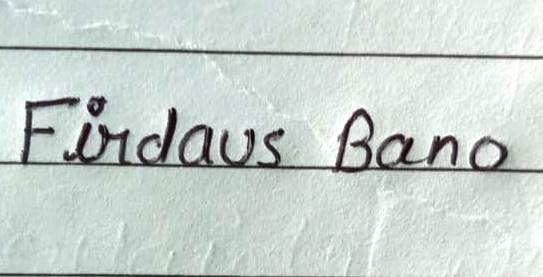 Firdaus Bano